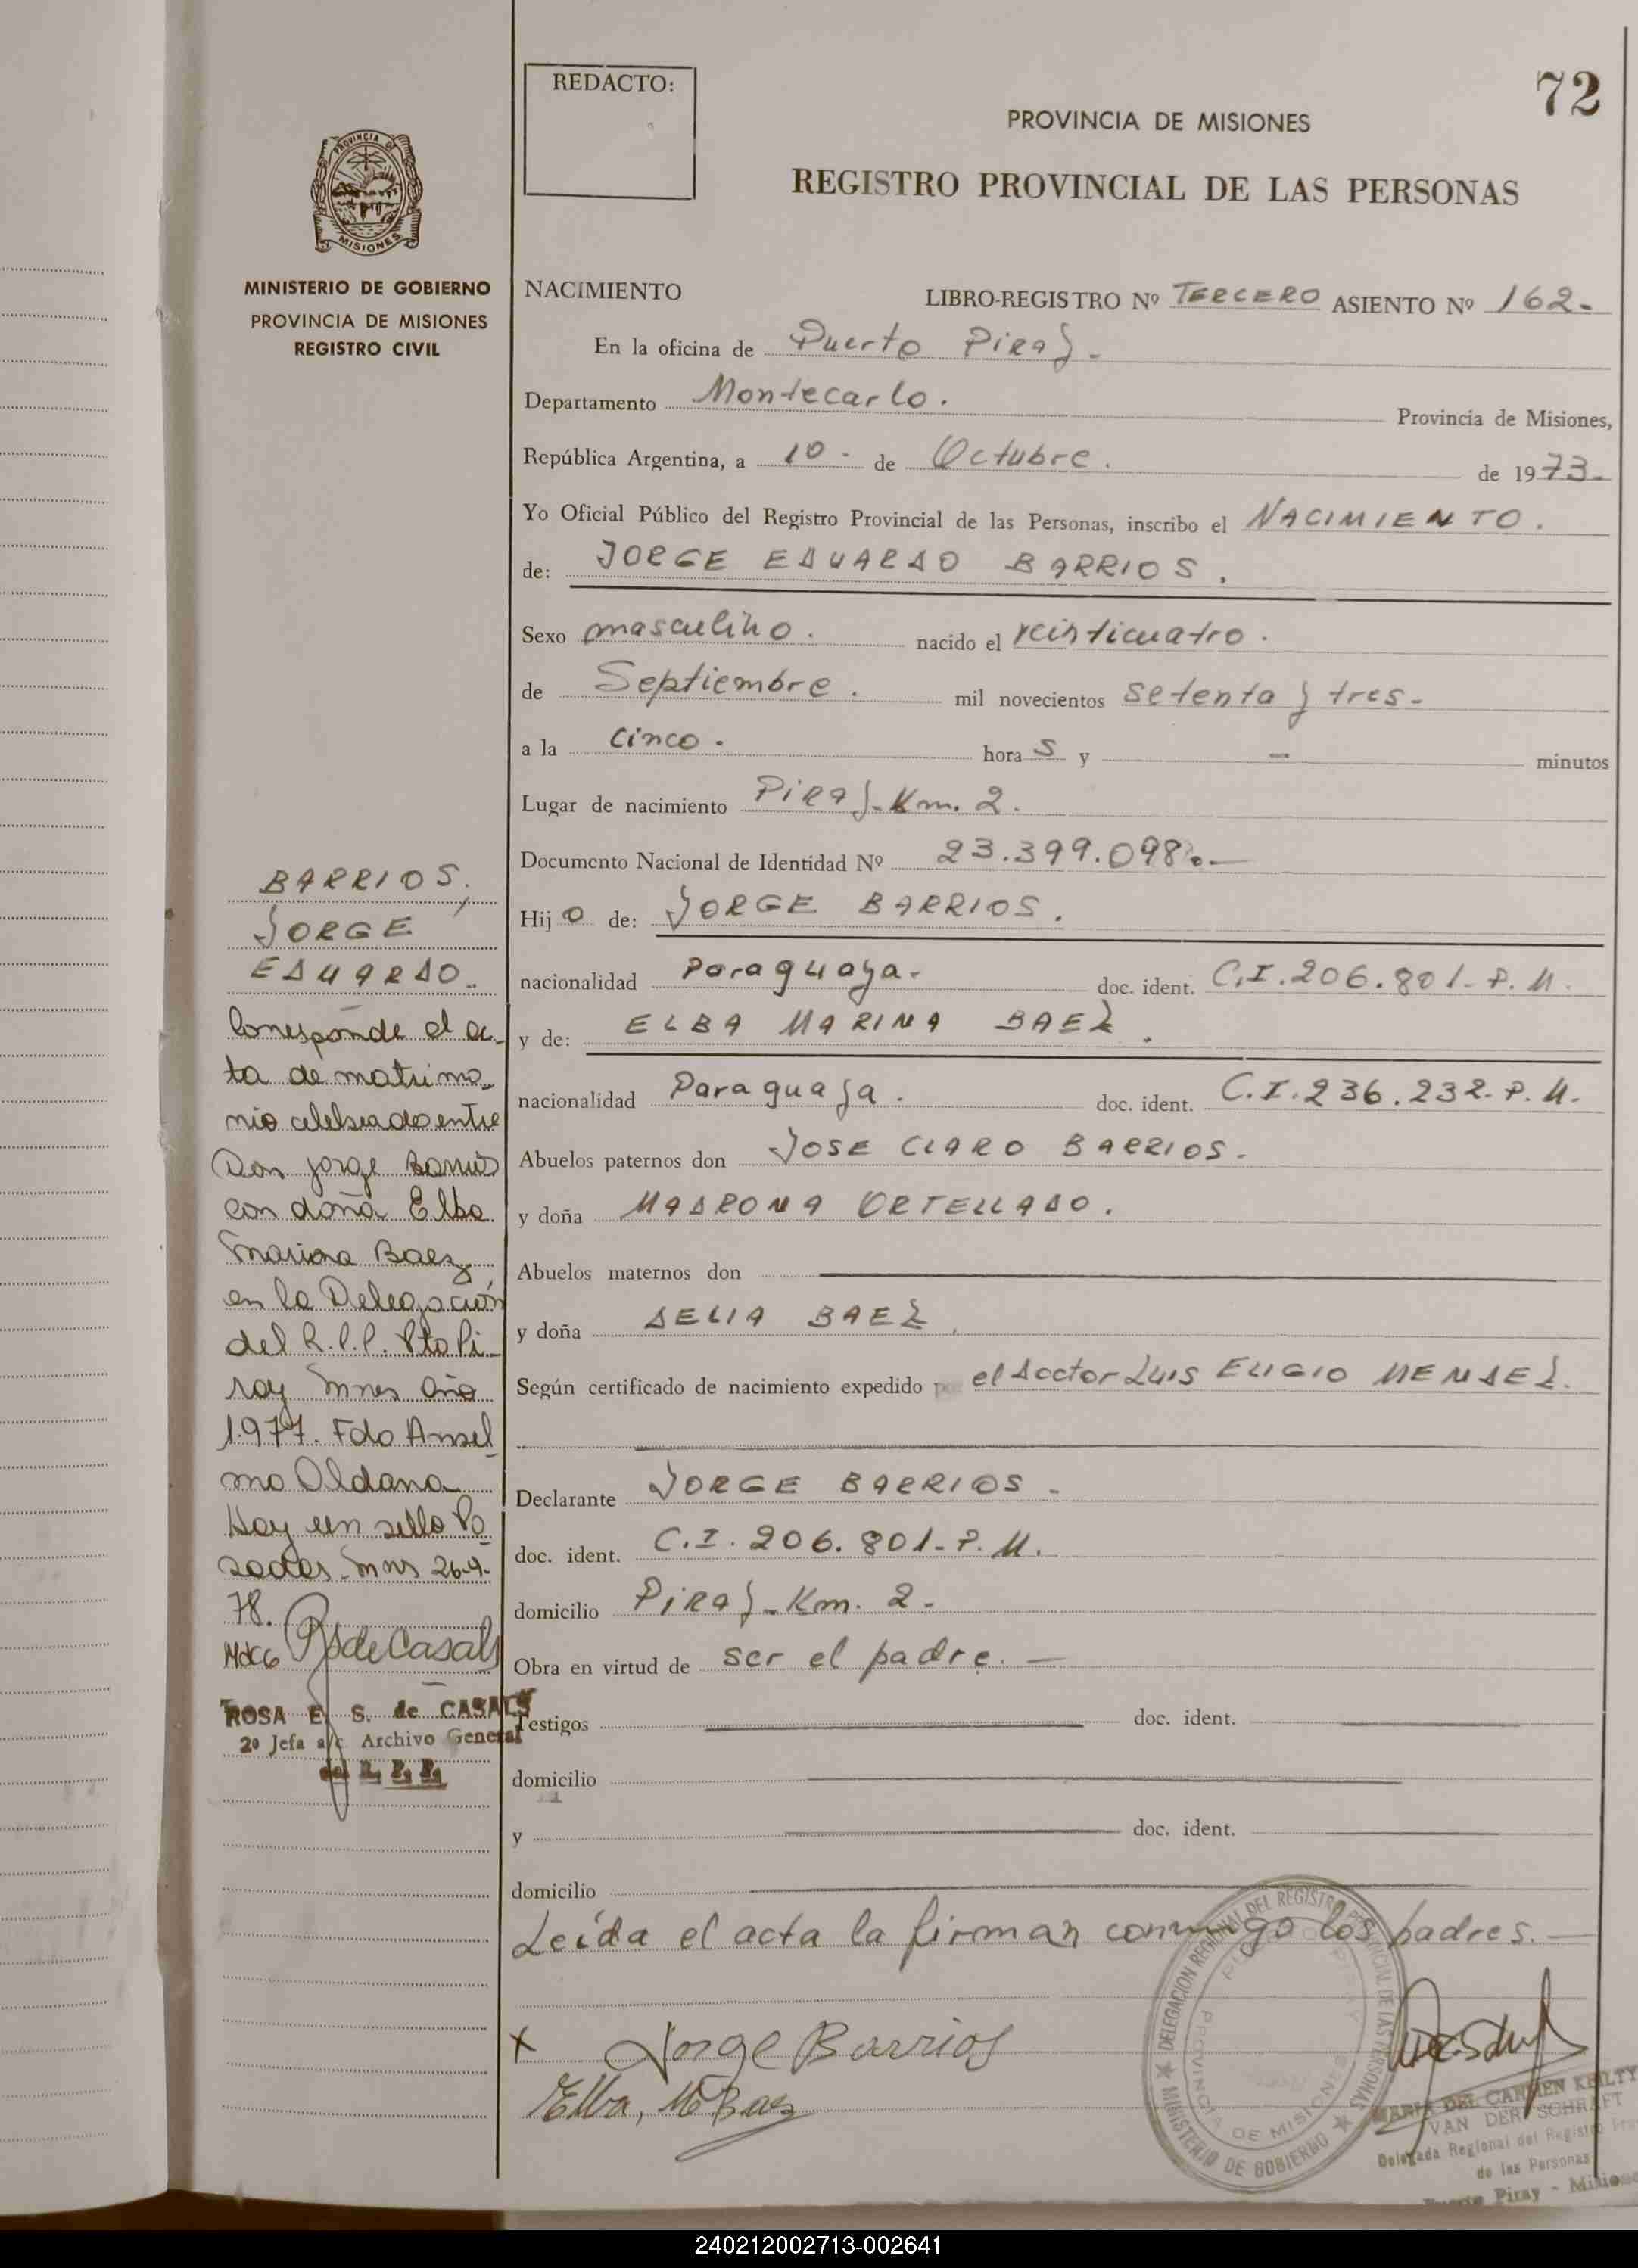 REDACTO:
72
PROVINCIA DE MISIONES
REGISTRO PROVINCIAL DE LAS PERSONAS
PROVINCIA DE
MISIONES
MINISTERIO DE GOBIERNO
PROVINCIA DE MISIONES
REGISTRO CIVIL
NACIMIENTO
LIBRO-REGISTRO Nº TERCERO ASIENTO Nº 162.-
En la oficina de Puerto Piray.-
Departamento Montecarlo. Provincia de Misiones,
República Argentina, a 10- de Octubre. de 1973.-
Yo Oficial Público del Registro Provincial de las Personas, inscribo el NACIMIENTO.
de: JORGE EDUARDO BARRIOS.
Sexo masculino. nacido el veinticuatro.
de Septiembre. mil novecientos setenta y tres.-
a la cinco. hora s y — minutos
Lugar de nacimiento Piray-Km. 2.
Documento Nacional de Identidad Nº 23.399.098.—
Hijo de: JORGE BARRIOS.
nacionalidad Paraguaya.- doc. ident. C.I. 206.801-P.M.
y de: ELBA MARINA BAEZ.
nacionalidad Paraguaya. doc. ident. C.I. 236.232-P.M.
Abuelos paternos don JOSE CLARO BARRIOS.
y doña MADRONA ORTELLADO.
Abuelos maternos don
y doña DELIA BAEZ.
Según certificado de nacimiento expedido el doctor LUIS ELIGIO MENDEZ.
Declarante JORGE BARRIOS-
doc. ident. C.I. 206.801-P.M.
domicilio Piray-Km. 2.
Obra en virtud de ser el padre.—
Testigos doc. ident.
domicilio
y doc. ident.
domicilio
Leída el acta la firman conmigo los padres.—
BARRIOS,
JORGE
EDUARDO.
Corresponde el ac-
ta de matrimo-
nio celebrado entre
Don Jorge Barrios
con doña Elba
Marina Baez
en la Delegación
del R.P.P. Pto Pi-
ray Mnes año
1.977. Fdo Ansel-
mo Aldana
Hay un sello Po-
sadas-Mns 26-9-
78.
R S de Casals
ROSA E. S. de CASALS
2º Jefa a/c Archivo General
del R. P. P.
x Jorge Barrios
Elba, M Baez
DELEGACION REGIONAL DEL REGISTRO PROVINCIAL DE LAS PERSONAS
MINISTERIO DE GOBIERNO
PROVINCIA DE MISIONES
MARIA DEL CARMEN KEILTY
VAN DER SCHRAFT
Delegada Regional del Registro
de las Personas
Puerto Piray - Misiones
240212002713-002641